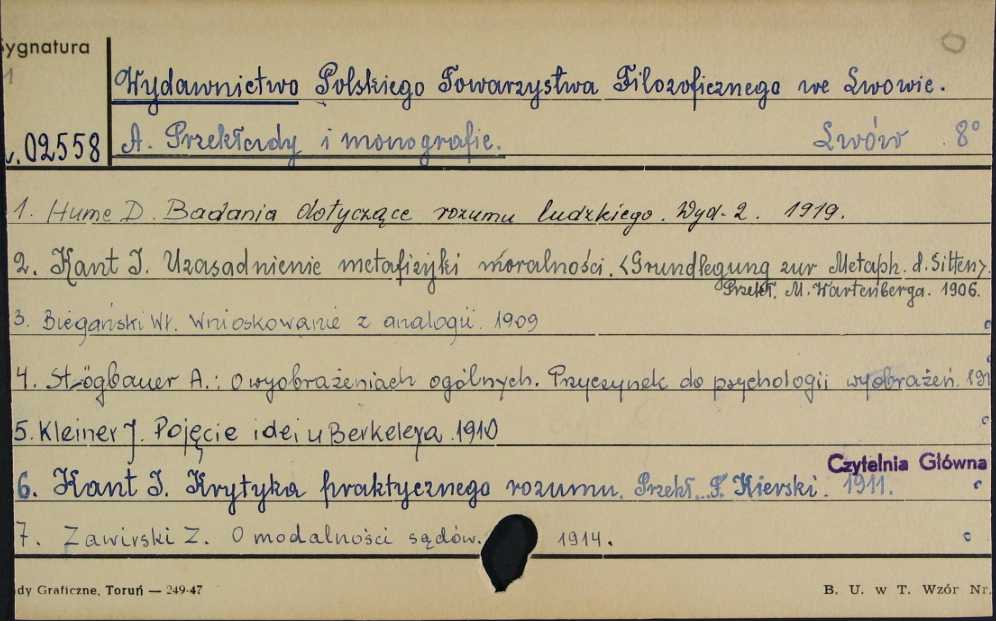 Sygnatura
Wydawnictwo Polskiego Towarzystwa Filozoficznego we Lwowie.
02558 A. Przekłady i monografie. Lwów 8°
1. Hume D. Badania dotyczące rozumu ludzkiego. Wyd. 2. 1919.
2. Kant I. Uzasadnienie metafizyki moralności. <Grundlegung zur Metaph. d. Sitten>.
Przekł. M. Wartenberga. 1906.
3. Biegański Wł. Wnioskowanie z analogii. 1909
4. Stögbauer A.: O wyobrażeniach ogólnych. Przyczynek do psychologii wyobrażeń.
5. Kleiner J. Pojęcie idei u Berkeleya. 1910
Czytelnia Główna
6. Kant I. Krytyka praktycznego rozumu. Przekł. F. Kierski. 1911.
7. Zawirski Z. O modalności sądów. 1914.
dy Graficzne, Toruń — 249-47 B. U. w T. Wzór Nr.